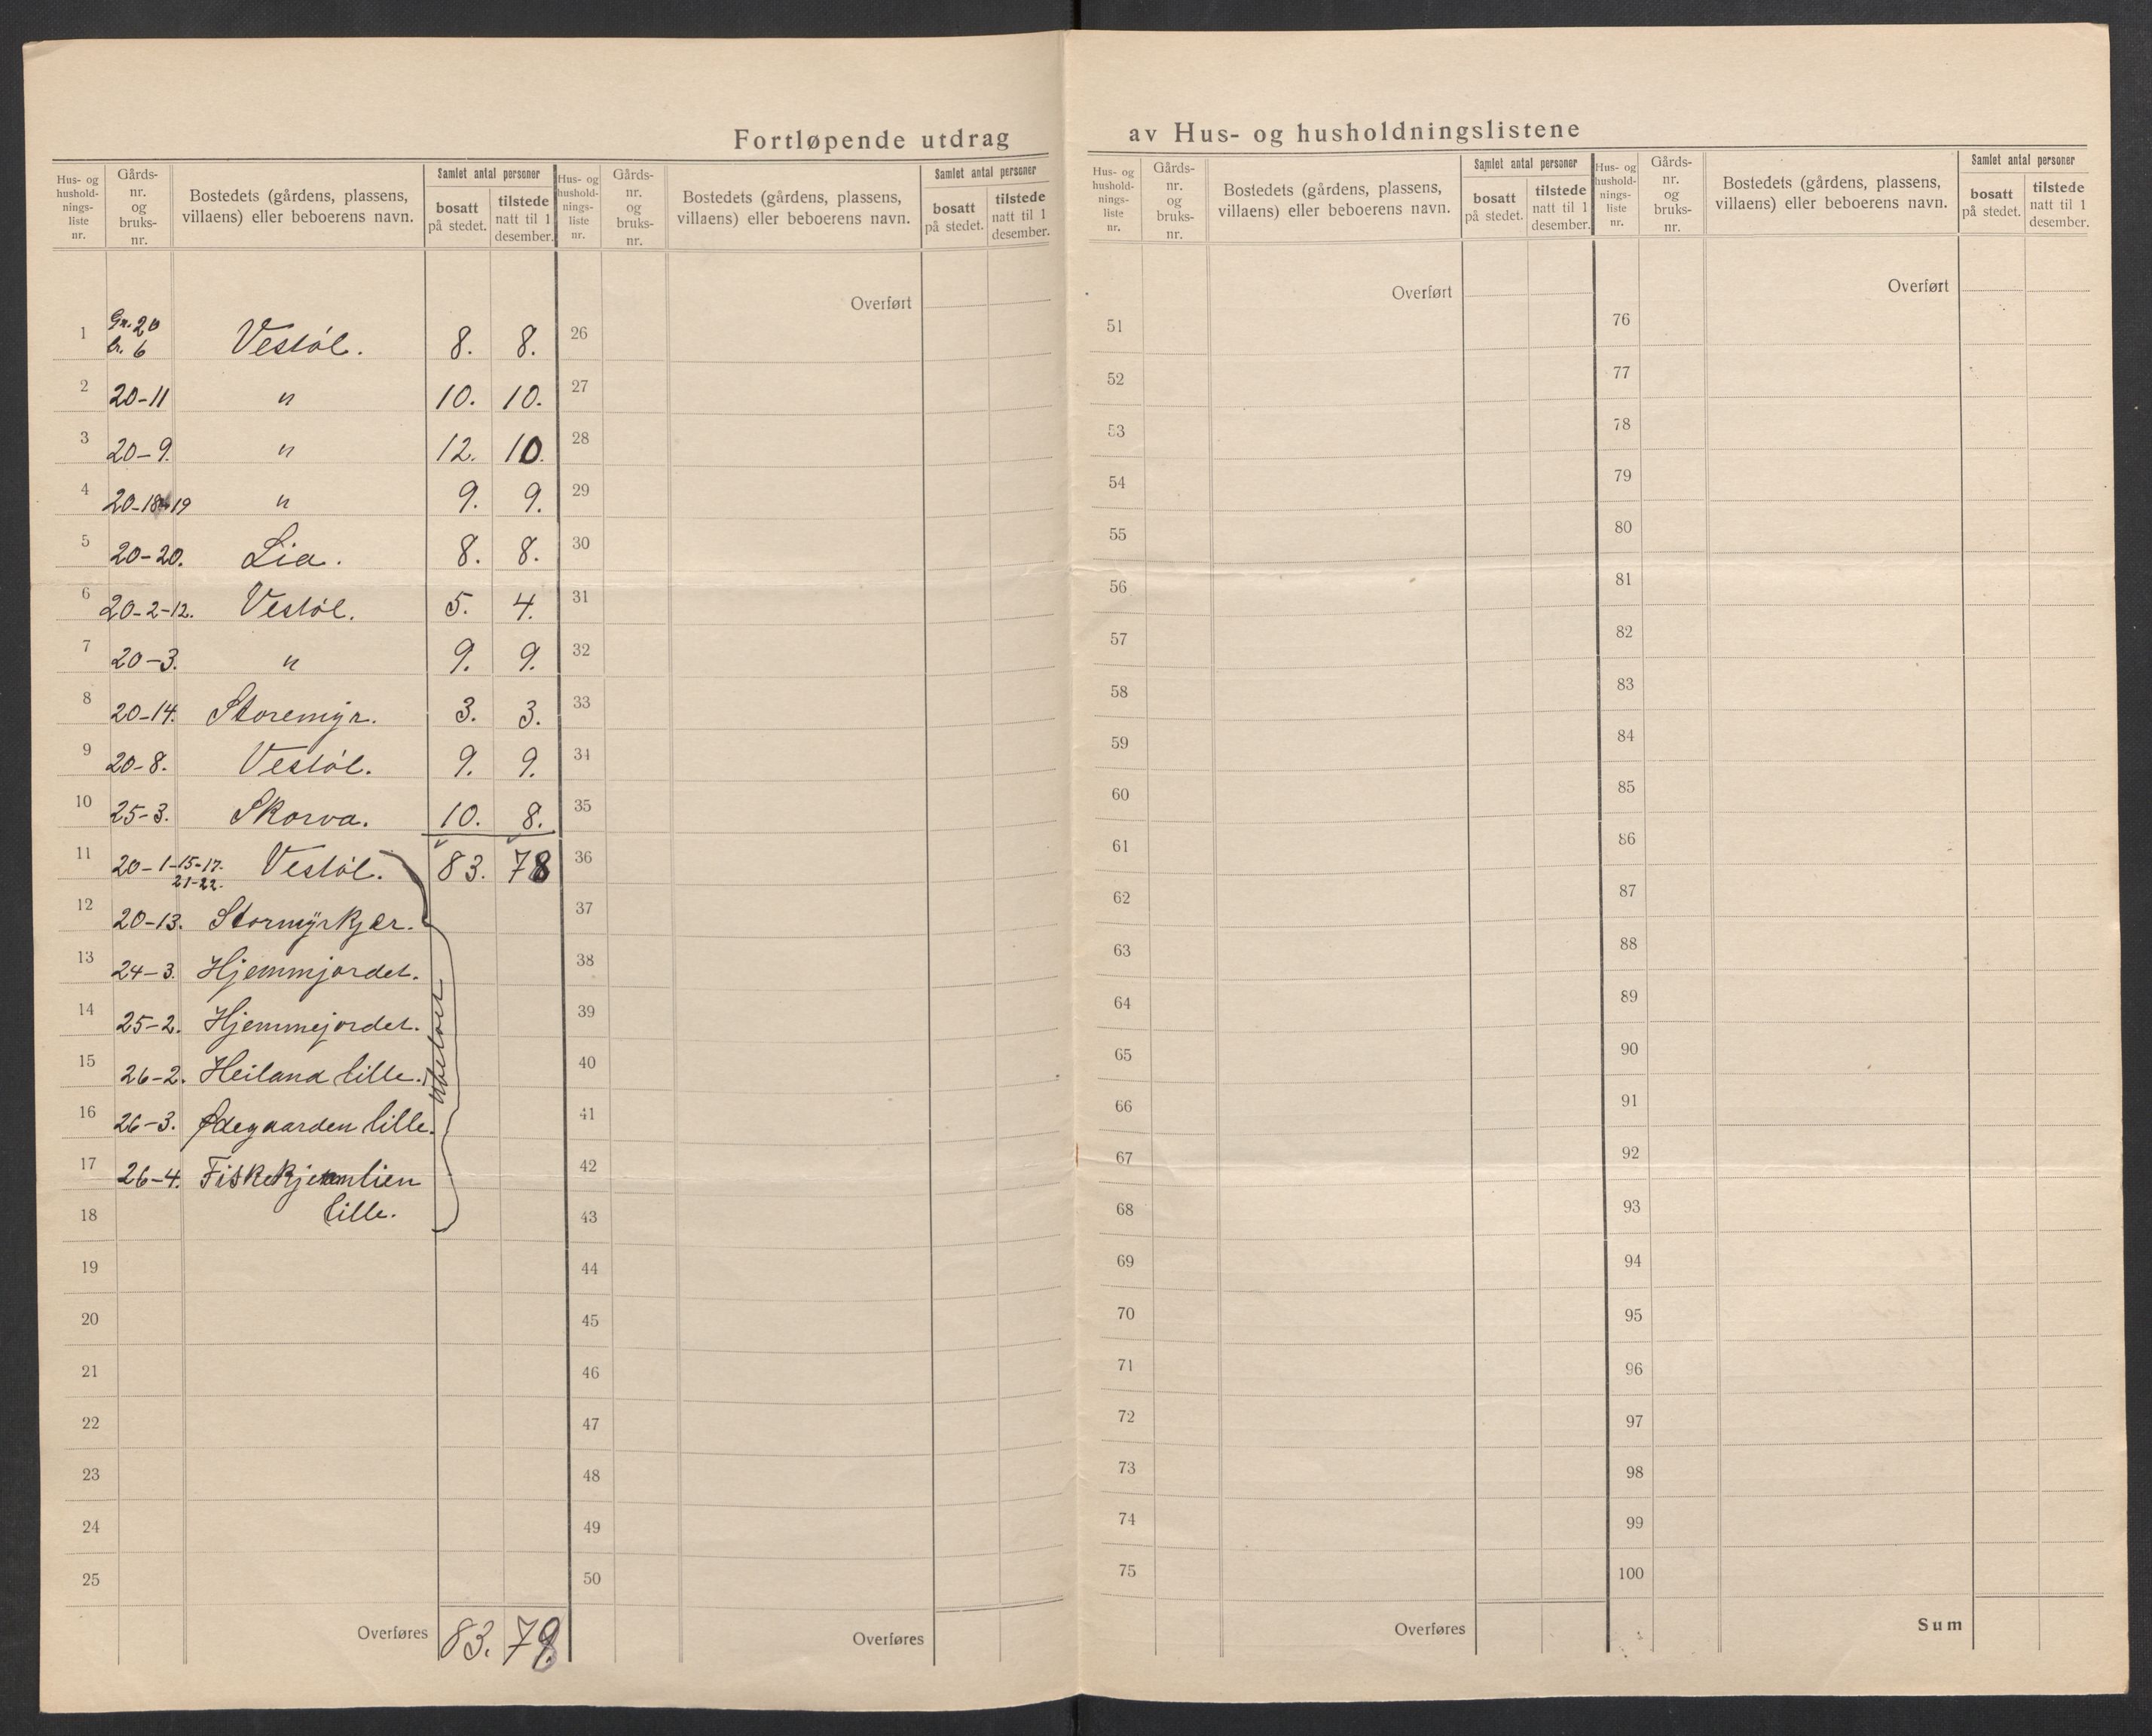 Fortløpende utdrag av Hus- og husholdningslistene
Hus- og hushold- nings- liste nr. | Gårds- nr. og bruks- nr. | Bostedets (gårdens, plassens, villaens) eller beboerens navn. | Samlet antal personer | bosatt på stedet. | tilstede natt til 1 desember.
1 Gr. 20 br. 6 Vestøl. 8. 8.
2 20-11 " 10. 10.
3 20-9. " 12. 10.
4 20-18 19 " 9. 9.
5 20-20. Lia. 8. 8.
6 20-2-12. Vestøl. 5. 4.
7 20-3. " 9. 9.
8 20-14. Storemyr. 3. 3.
9 20-8. Vestøl. 9. 9.
10 25-3. Skorva. 10. 8.
11 20-1-15-17. 21-22. Vestøl. 83. 78
12 20-13. Stormyrkjær.
13 24-3. Hjemmjordet.
14 25-2. Hjemmejordet.
15 26-2. Heiland lille.
16 26-3. Ødegaarden lille.
17 26-4. Fiskekjernlien
18 lille.
ubebodd
19
20
21
22
23
24
25
Overføres 83. 78
Hus- og hushold- nings- liste nr. | Gårds- nr. og bruks- nr. | Bostedets (gårdens, plassens, villaens) eller beboerens navn. | Samlet antal personer | bosatt på stedet. | tilstede natt til 1 desember.
Overført
26
27
28
29
30
31
32
33
34
35
36
37
38
39
40
41
42
43
44
45
46
47
48
49
50
Overføres
Hus- og hushold- nings- liste nr. | Gårds- nr. og bruks- nr. | Bostedets (gårdens, plassens, villaens) eller beboerens navn. | Samlet antal personer | bosatt på stedet. | tilstede natt til 1 desember.
Overført
51
52
53
54
55
56
57
58
59
60
61
62
63
64
65
66
67
68
69
70
71
72
73
74
75
Overføres
Hus- og hushold- nings- liste nr. | Gårds- nr. og bruks- nr. | Bostedets (gårdens, plassens, villaens) eller beboerens navn. | Samlet antal personer | bosatt på stedet. | tilstede natt til 1 desember.
Overført
76
77
78
79
80
81
82
83
84
85
86
87
88
89
90
91
92
93
94
95
96
97
98
99
100
Sum